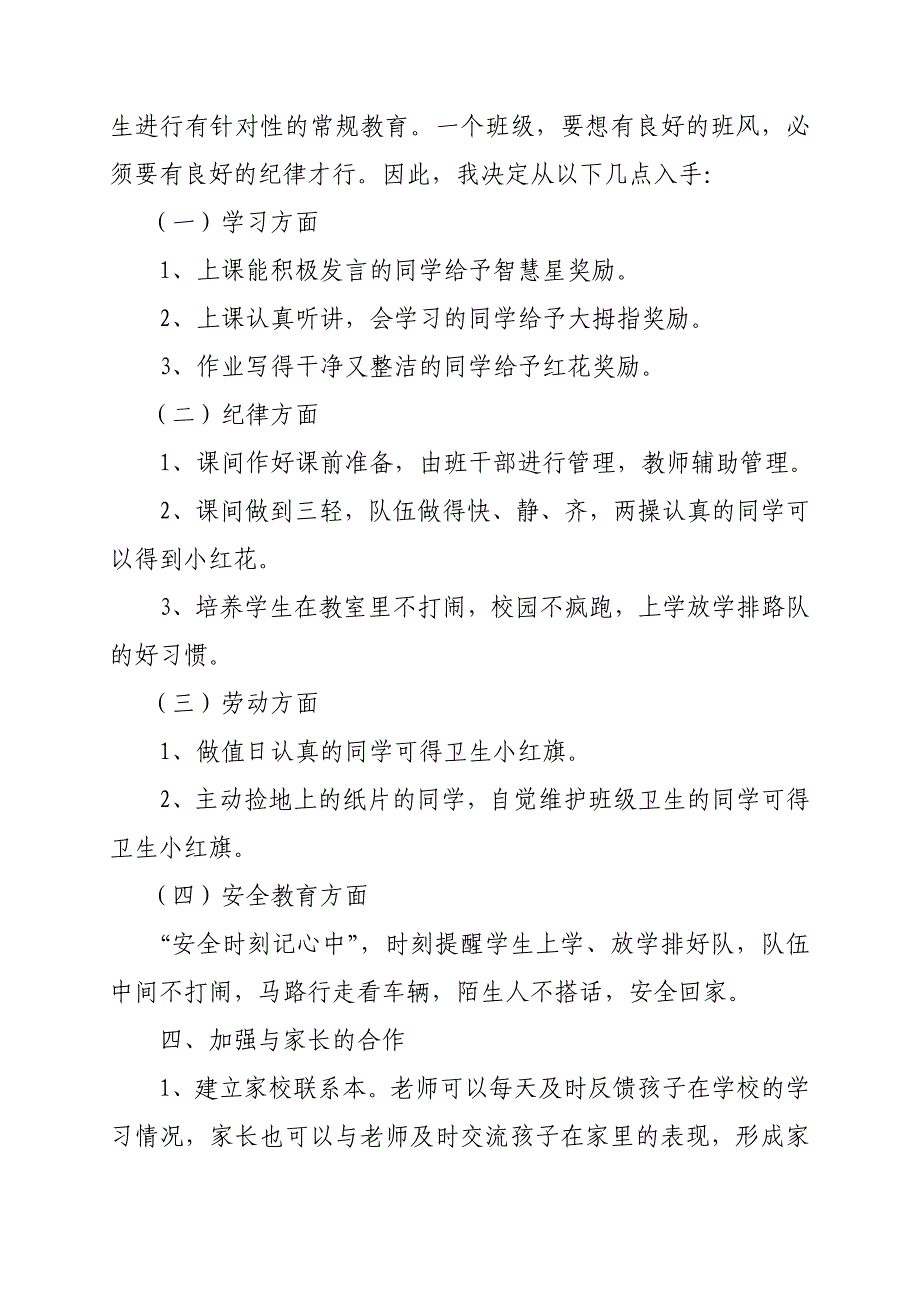 生进行有针对性的常规教育。一个班级，要想有良好的班风，必
须要有良好的纪律才行。因此，我决定从以下几点入手：
（一）学习方面
1、上课能积极发言的同学给予智慧星奖励。
2、上课认真听讲，会学习的同学给予大拇指奖励。
3、作业写得干净又整洁的同学给予红花奖励。
（二）纪律方面
1、课间作好课前准备，由班干部进行管理，教师辅助管理。
2、课间做到三轻，队伍做得快、静、齐，两操认真的同学可
以得到小红花。
3、培养学生在教室里不打闹，校园不疯跑，上学放学排路队
的好习惯。
（三）劳动方面
1、做值日认真的同学可得卫生小红旗。
2、主动捡地上的纸片的同学，自觉维护班级卫生的同学可得
卫生小红旗。
（四）安全教育方面
“安全时刻记心中”，时刻提醒学生上学、放学排好队，队伍
中间不打闹，马路行走看车辆，陌生人不搭话，安全回家。
四、加强与家长的合作
1、建立家校联系本。老师可以每天及时反馈孩子在学校的学
习情况，家长也可以与老师及时交流孩子在家里的表现，形成家